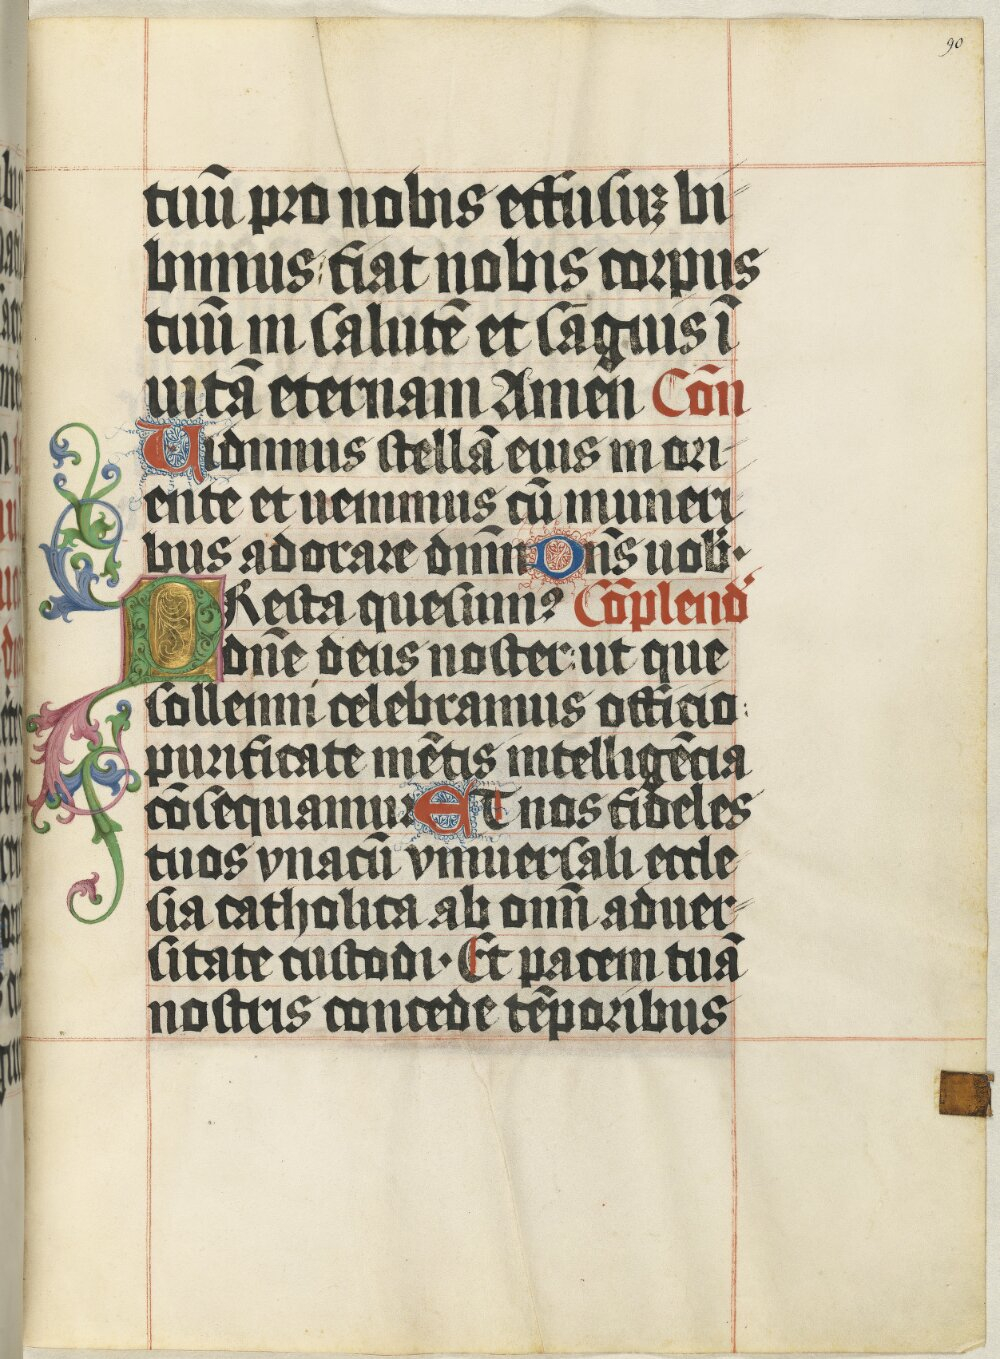 90
tuū pro nobis effusuʒ bi
bimus: fiat nobis corpus
tuū in salutē et sāguis ī
uitā eternam Amen Cōn
Uidimus stellā eius in ori-
ente et uenimus cū muneri-
bus adorare dn̄m Dn̄s uob·
PResta quesum? Cōplend
dn̄e deus noster: ut que
sollenni celebramus officio:
purificate mētis intelligēcia
cōsequamur ET nos fideles
tuos vnacū vniuersali eccle-
sia catholica ab omn̄ aduer-
sitate custodi· Et pacem tuā
nostris concede tēporibus